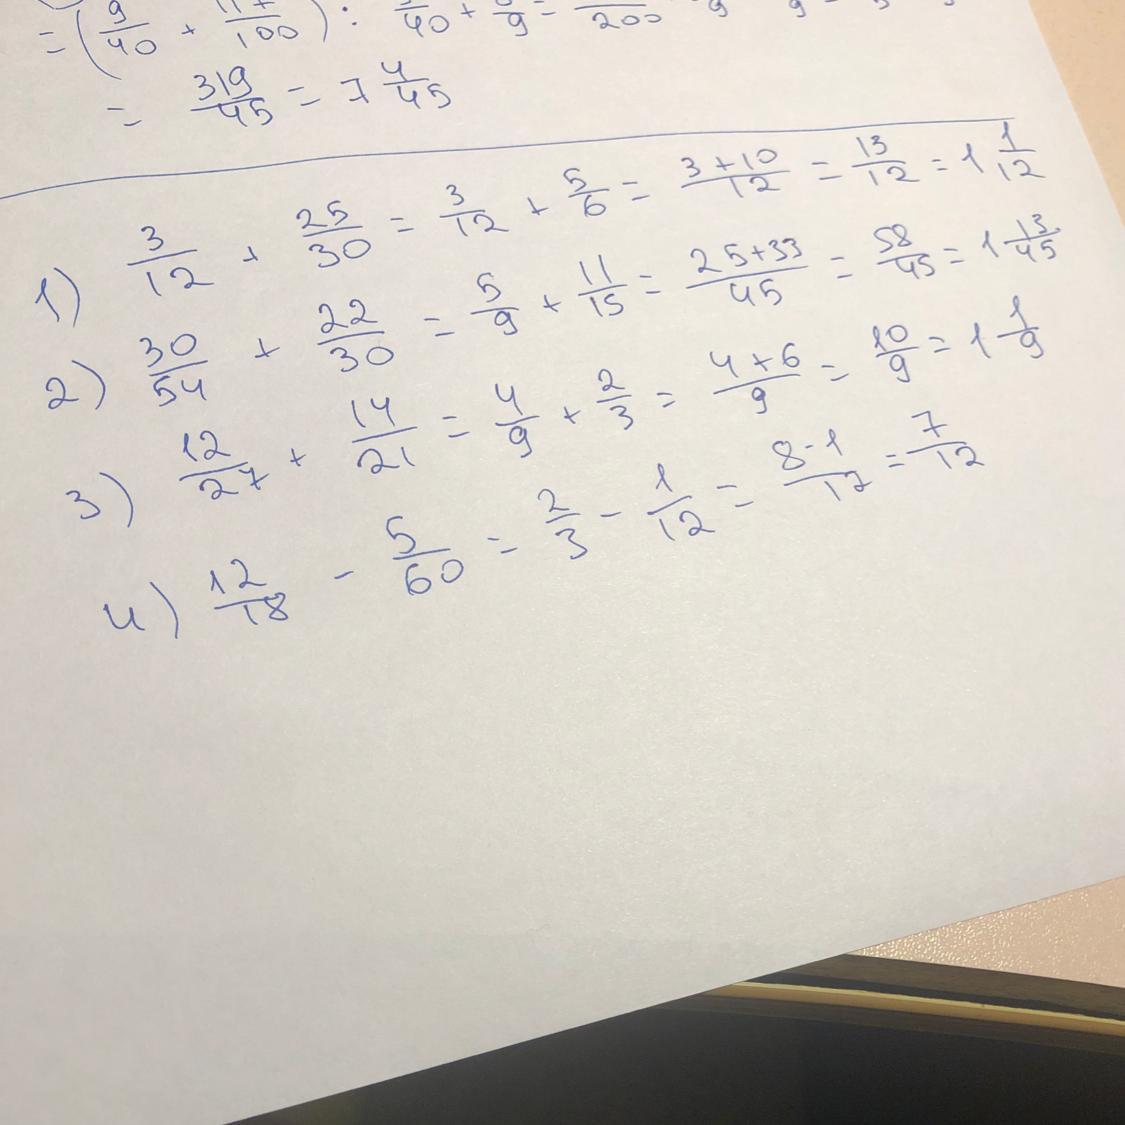 = (9/40 + 117/100) : 40 + 9 = 200
= 319/45 = 7 4/45
1) 3/12 + 25/30 = 3/12 + 5/6 = (3+10)/12 = 13/12 = 1 1/12
2) 30/54 + 22/30 = 5/9 + 11/15 = (25+33)/45 = 58/45 = 1 13/45
3) 12/27 + 14/21 = 4/9 + 2/3 = (4+6)/9 = 10/9 = 1 1/9
4) 12/18 - 5/60 = 2/3 - 1/12 = (8-1)/12 = 7/12